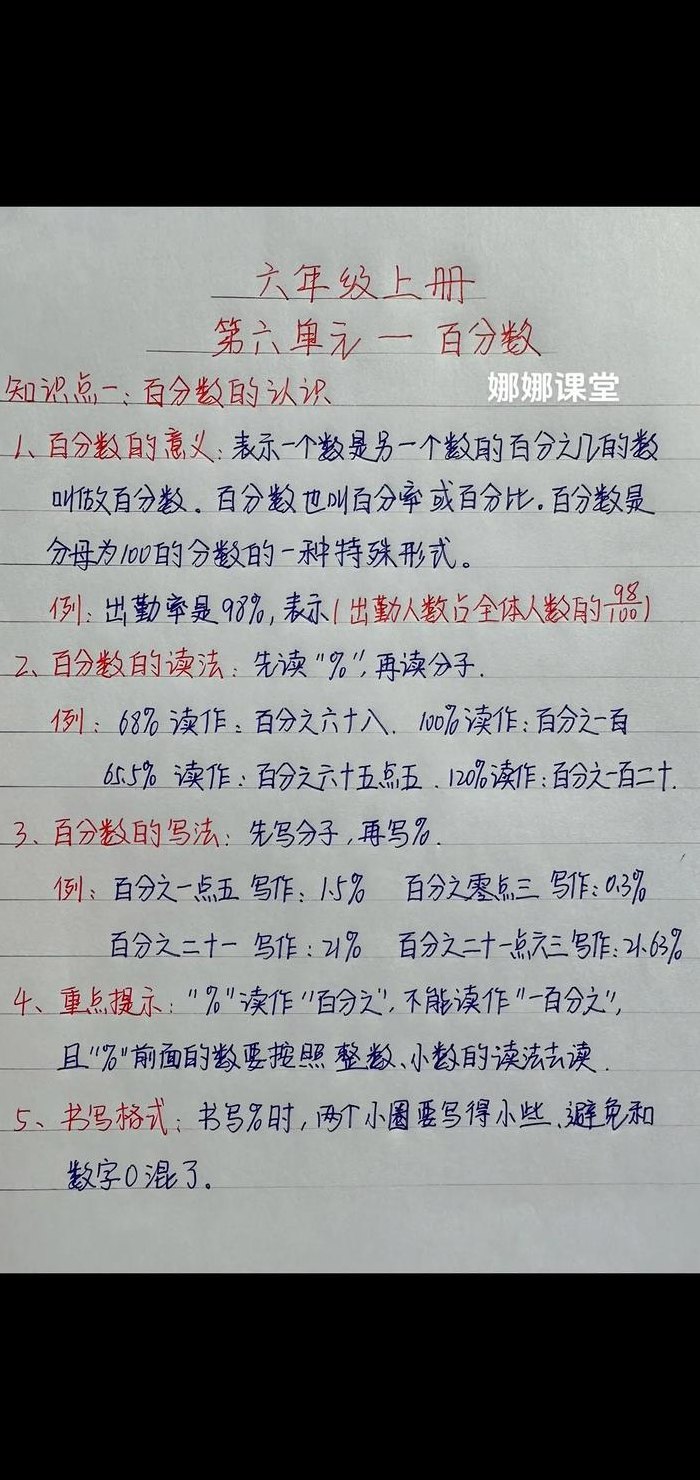 六年级上册
第六单元 — 百分数
知识点一：百分数的认识
娜娜课堂
1、百分数的意义：表示一个数是另一个数的百分之几的数
叫做百分数。百分数也叫百分率或百分比。百分数是
分母为100的分数的一种特殊形式。
例：出勤率是98%，表示(出勤人数占全体人数的98/100)
2、百分数的读法：先读"%"，再读分子.
例：68% 读作：百分之六十八. 100%读作：百分之一百
65.5% 读作：百分之六十五点五. 120%读作：百分之一百二十.
3、百分数的写法：先写分子，再写%.
例：百分之一点五 写作：1.5% 百分之零点三 写作：0.3%
百分之二十一 写作：21% 百分之二十一点六三写作：21.63%
4、重点提示："%"读作"百分之"，不能读作"一百分之"，
且"%"前面的数要按照 整数、小数的读法去读.
5、书写格式：书写%时，两个小圈要写得小些、避免和
数字0混了。